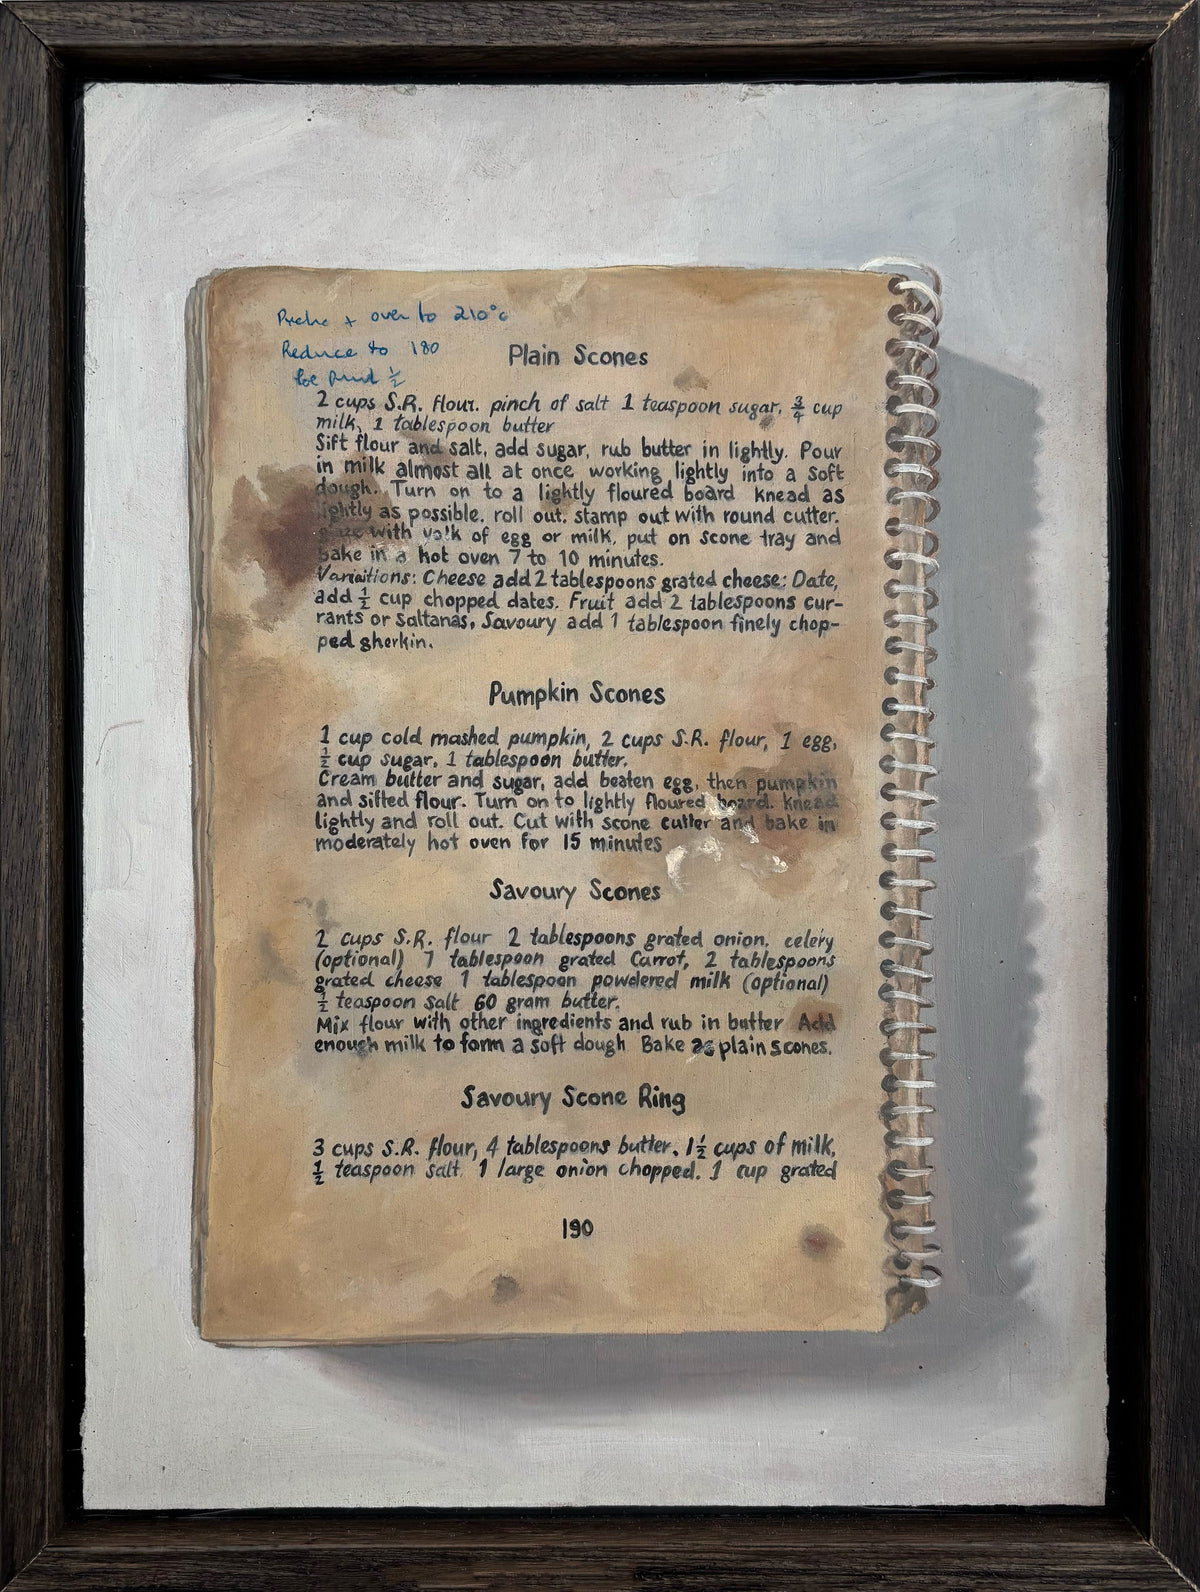 over to 210°c
Reduce to 180
½
Plain Scones
2 cups S.R. flour. pinch of salt 1 teaspoon sugar, ¾ cup
milk, 1 tablespoon butter
Sift flour and salt, add sugar, rub butter in lightly. Pour
in milk almost all at once working lightly into a soft
dough. Turn on to a lightly floured board knead as
lightly as possible. roll out. stamp out with round cutter.
glaze with yolk of egg or milk, put on scone tray and
bake in a hot oven 7 to 10 minutes.
Variations: Cheese add 2 tablespoons grated cheese: Date,
add ½ cup chopped dates. Fruit add 2 tablespoons cur-
rants or saltanas, Savoury add 1 tablespoon finely chop-
ped gherkin.
Pumpkin Scones
1 cup cold mashed pumpkin, 2 cups S.R. flour, 1 egg,
½ cup sugar, 1 tablespoon butter.
Cream butter and sugar, add beaten egg, then pumpkin
and sifted flour. Turn on to lightly floured board. Knead
lightly and roll out. Cut with scone cutter and bake in
moderately hot oven for 15 minutes
Savoury Scones
2 cups S.R. flour 2 tablespoons grated onion, celery
(optional) 1 tablespoon grated Carrot, 2 tablespoons
grated cheese 1 tablespoon powdered milk (optional)
½ teaspoon salt 60 gram butter.
Mix flour with other ingredients and rub in butter Add
enough milk to form a soft dough Bake as plain scones.
Savoury Scone Ring
3 cups S.R. flour, 4 tablespoons butter, 1½ cups of milk,
½ teaspoon salt. 1 large onion chopped. 1 cup grated
190